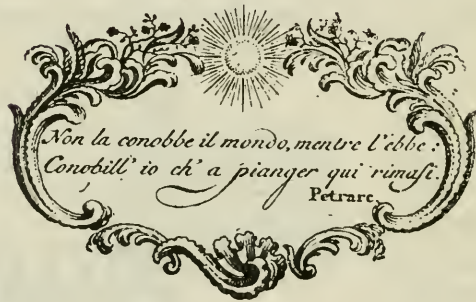 Non la conobbe il mondo, mentre l'ebbe:
Conobill' io ch' a pianger qui rimasi.
Petrarc.